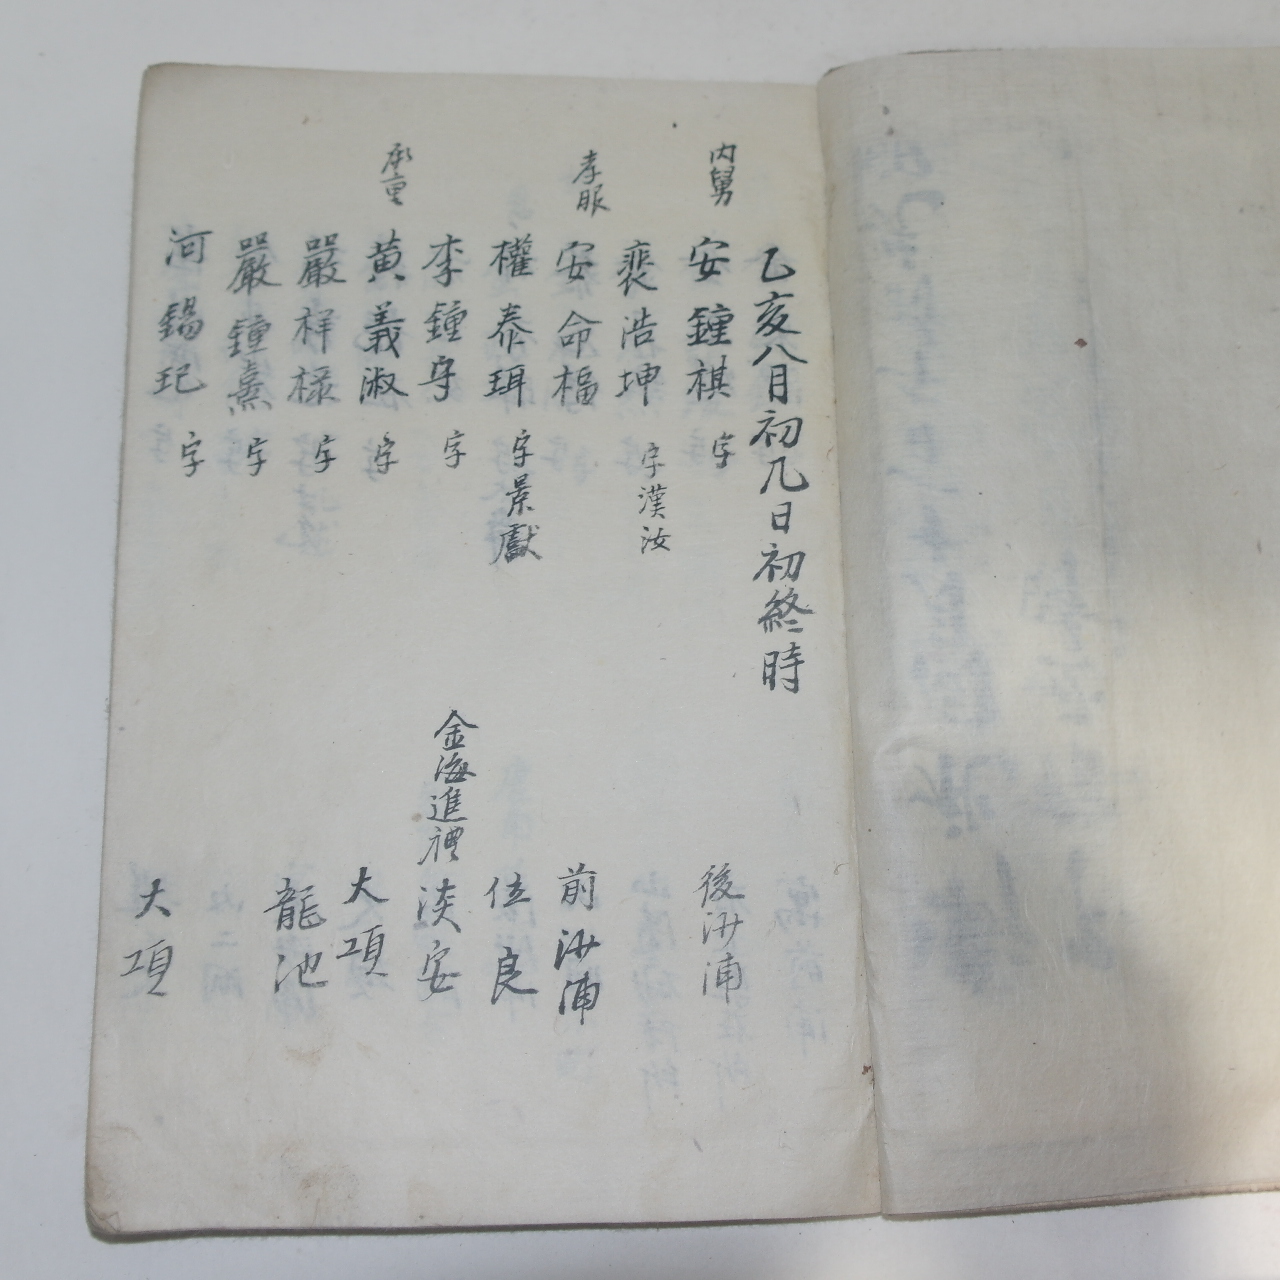 乙亥八月初九日初終時
內舅 安鍾祺 字 後汌浦
裴浩坤 字漢汝
孝服 安命福 前汌浦
權泰珥 字景獻 位良
李鍾守 字 金海進禮淡安
承重 黃義淑 字 大項
嚴祥祿 字 龍池
嚴鍾熹 字
河錫玘 字 大項